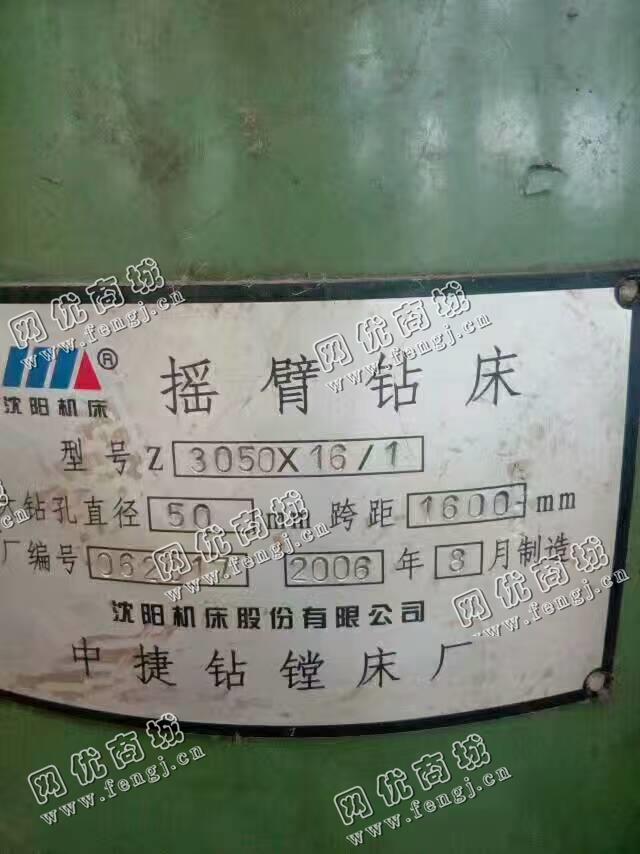 ®
沈阳机床
摇臂钻床
型号Z 3050X16/1
钻孔直径 50 mm 跨距 1600 mm
厂编号 2006年8月制造
沈阳机床股份有限公司
中捷钻镗床厂
网优商城
www.fengj.cn
网优商城
www.fengj.cn
网优商城
www.fengj.cn
网优商城
www.fengj.cn
网优商城
www.fengj.cn
网优商城
www.fengj.cn
网优商城
www.fengj.cn